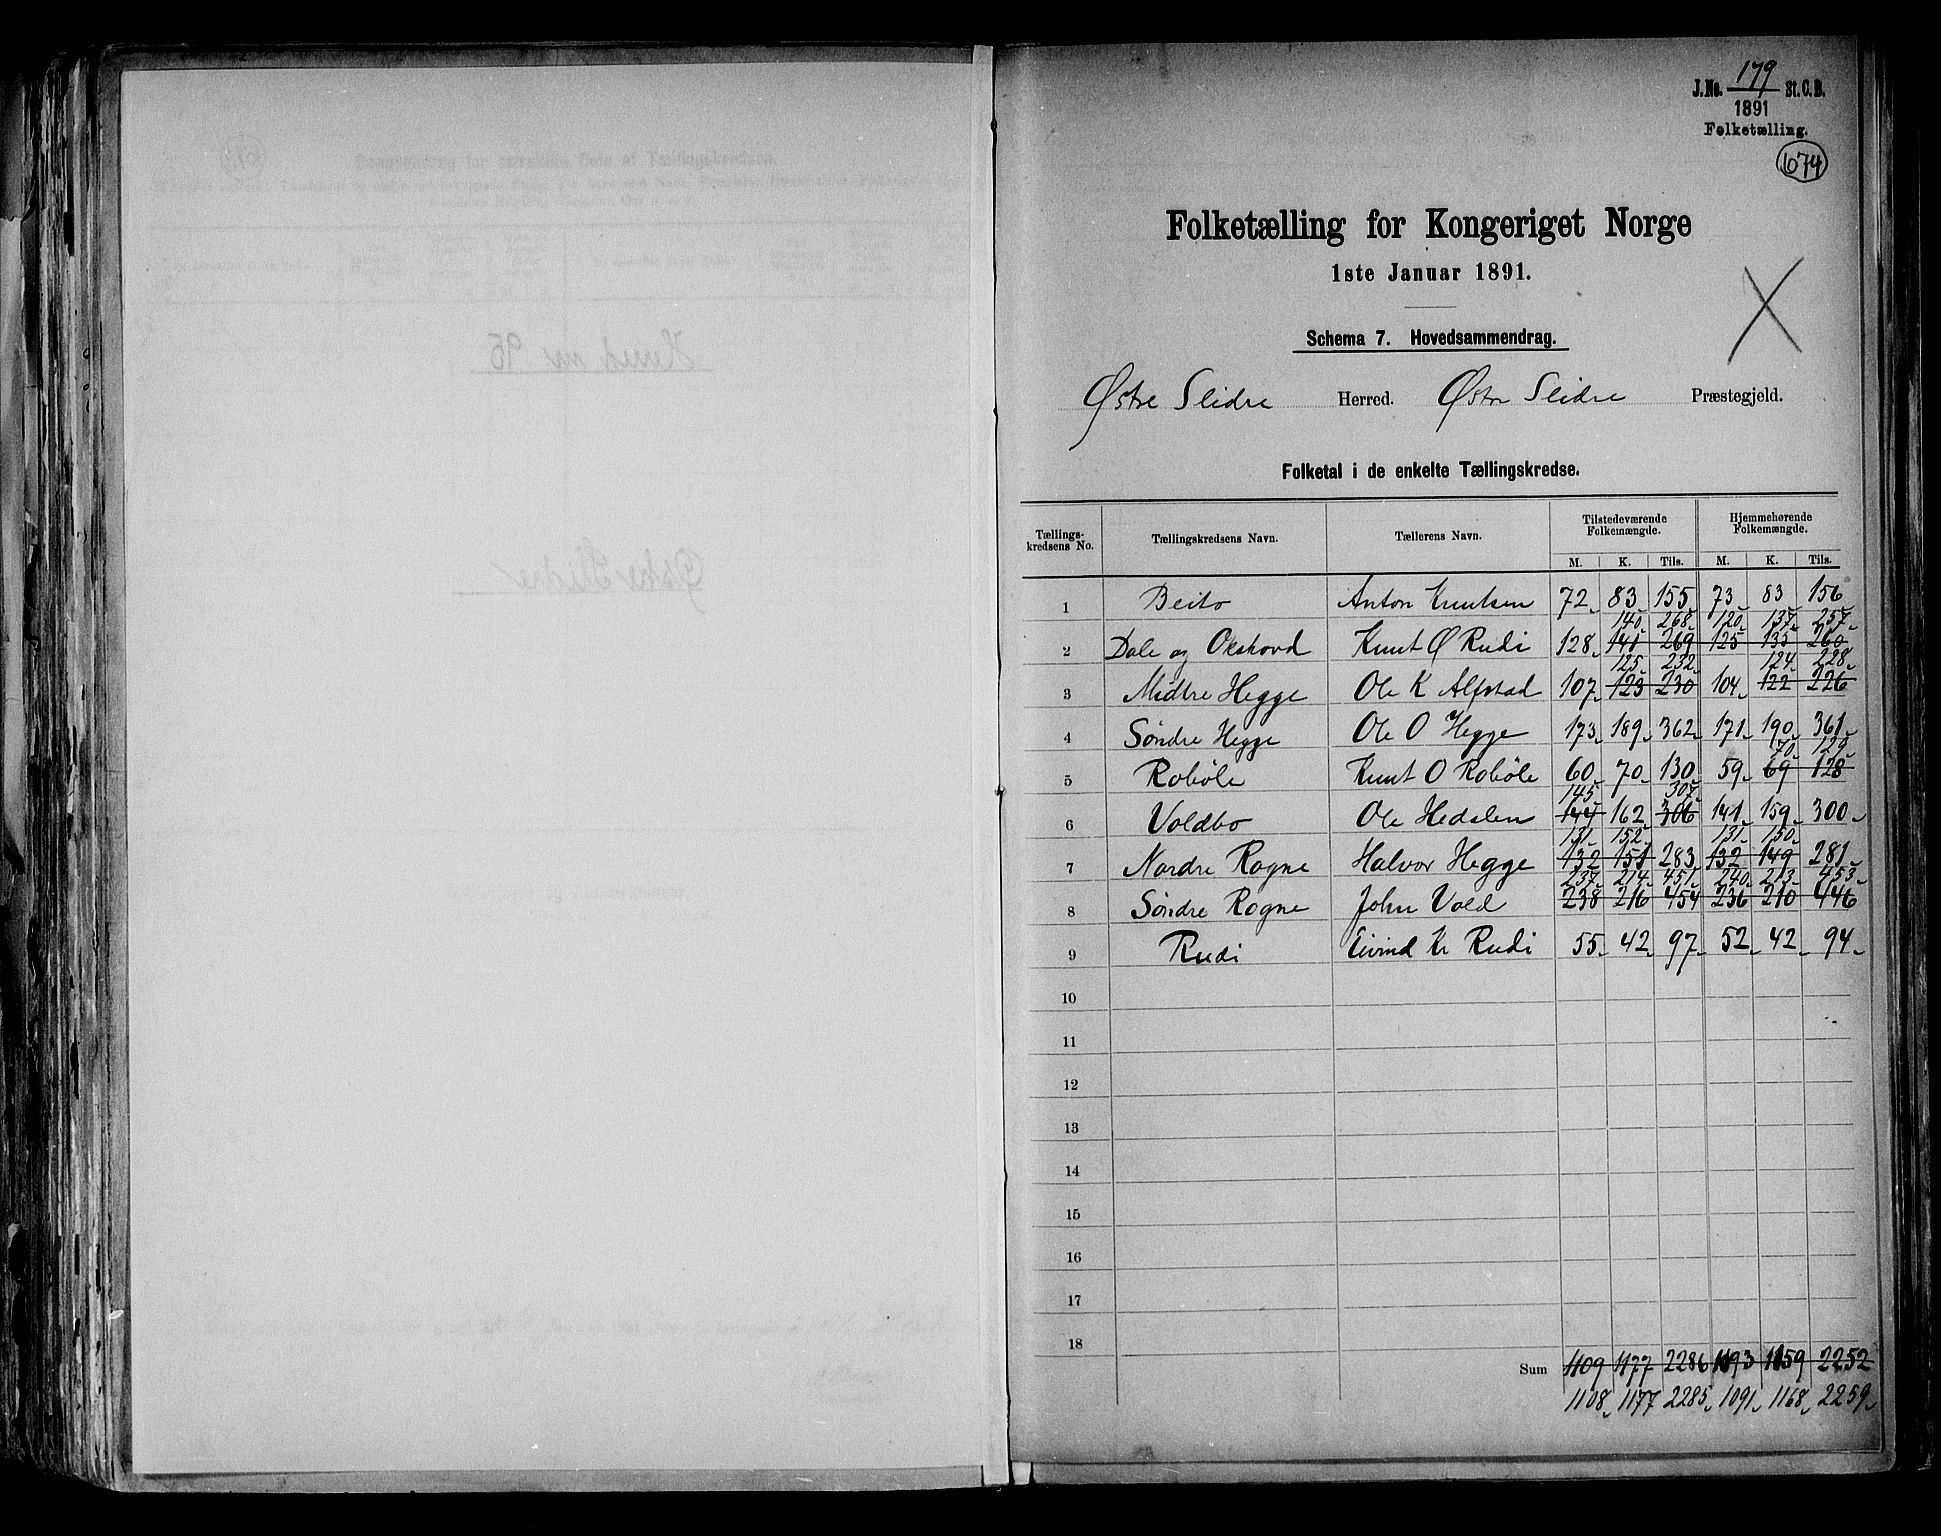 J.No. 179 St.C.B.
1891
Folketælling.
674
Folketælling for Kongeriget Norge
1ste Januar 1891.
Schema 7. Hovedsammendrag.
Østre Slidre Herred. Østre Slidre Præstegjeld.
Folketal i de enkelte Tællingskredse.
Tællings-kredsens No. Tællingskredsens Navn. Tællerens Navn. Tilstedeværende Folkemængde. Hjemmehørende Folkemængde.
M. K. Tils. M. K. Tils.
1 Beito Anton Knutsen 72 83 155 73 83 156
140 268 120 137 257
2 Dale og Okshovd Knut Ø Rudi 128 141 269 125 135 260
125 232 124 228
3 Midtre Hegge Ole K Alfstad 107 123 230 104 122 226
4 Søndre Hegge Ole O Hegge 173 189 362 171 190 361
70 129
5 Robøle Knut O Robøle 60 70 130 59 69 128
145 307
6 Voldbo Ole Hedalen 144 162 306 141 159 300
131 152 131 150
7 Nordre Rogne Halvor Hegge 132 151 283 132 149 281
237 214 451 240 213 453
8 Søndre Rogne John Vold 238 216 454 236 210 446
9 Rudi Eivind Kr Rudi 55 42 97 52 42 94
10
11
12
13
14
15
16
17
18
Sum 1109 1177 2286 1093 1159 2252
1108 1177 2285 1091 1168 2259